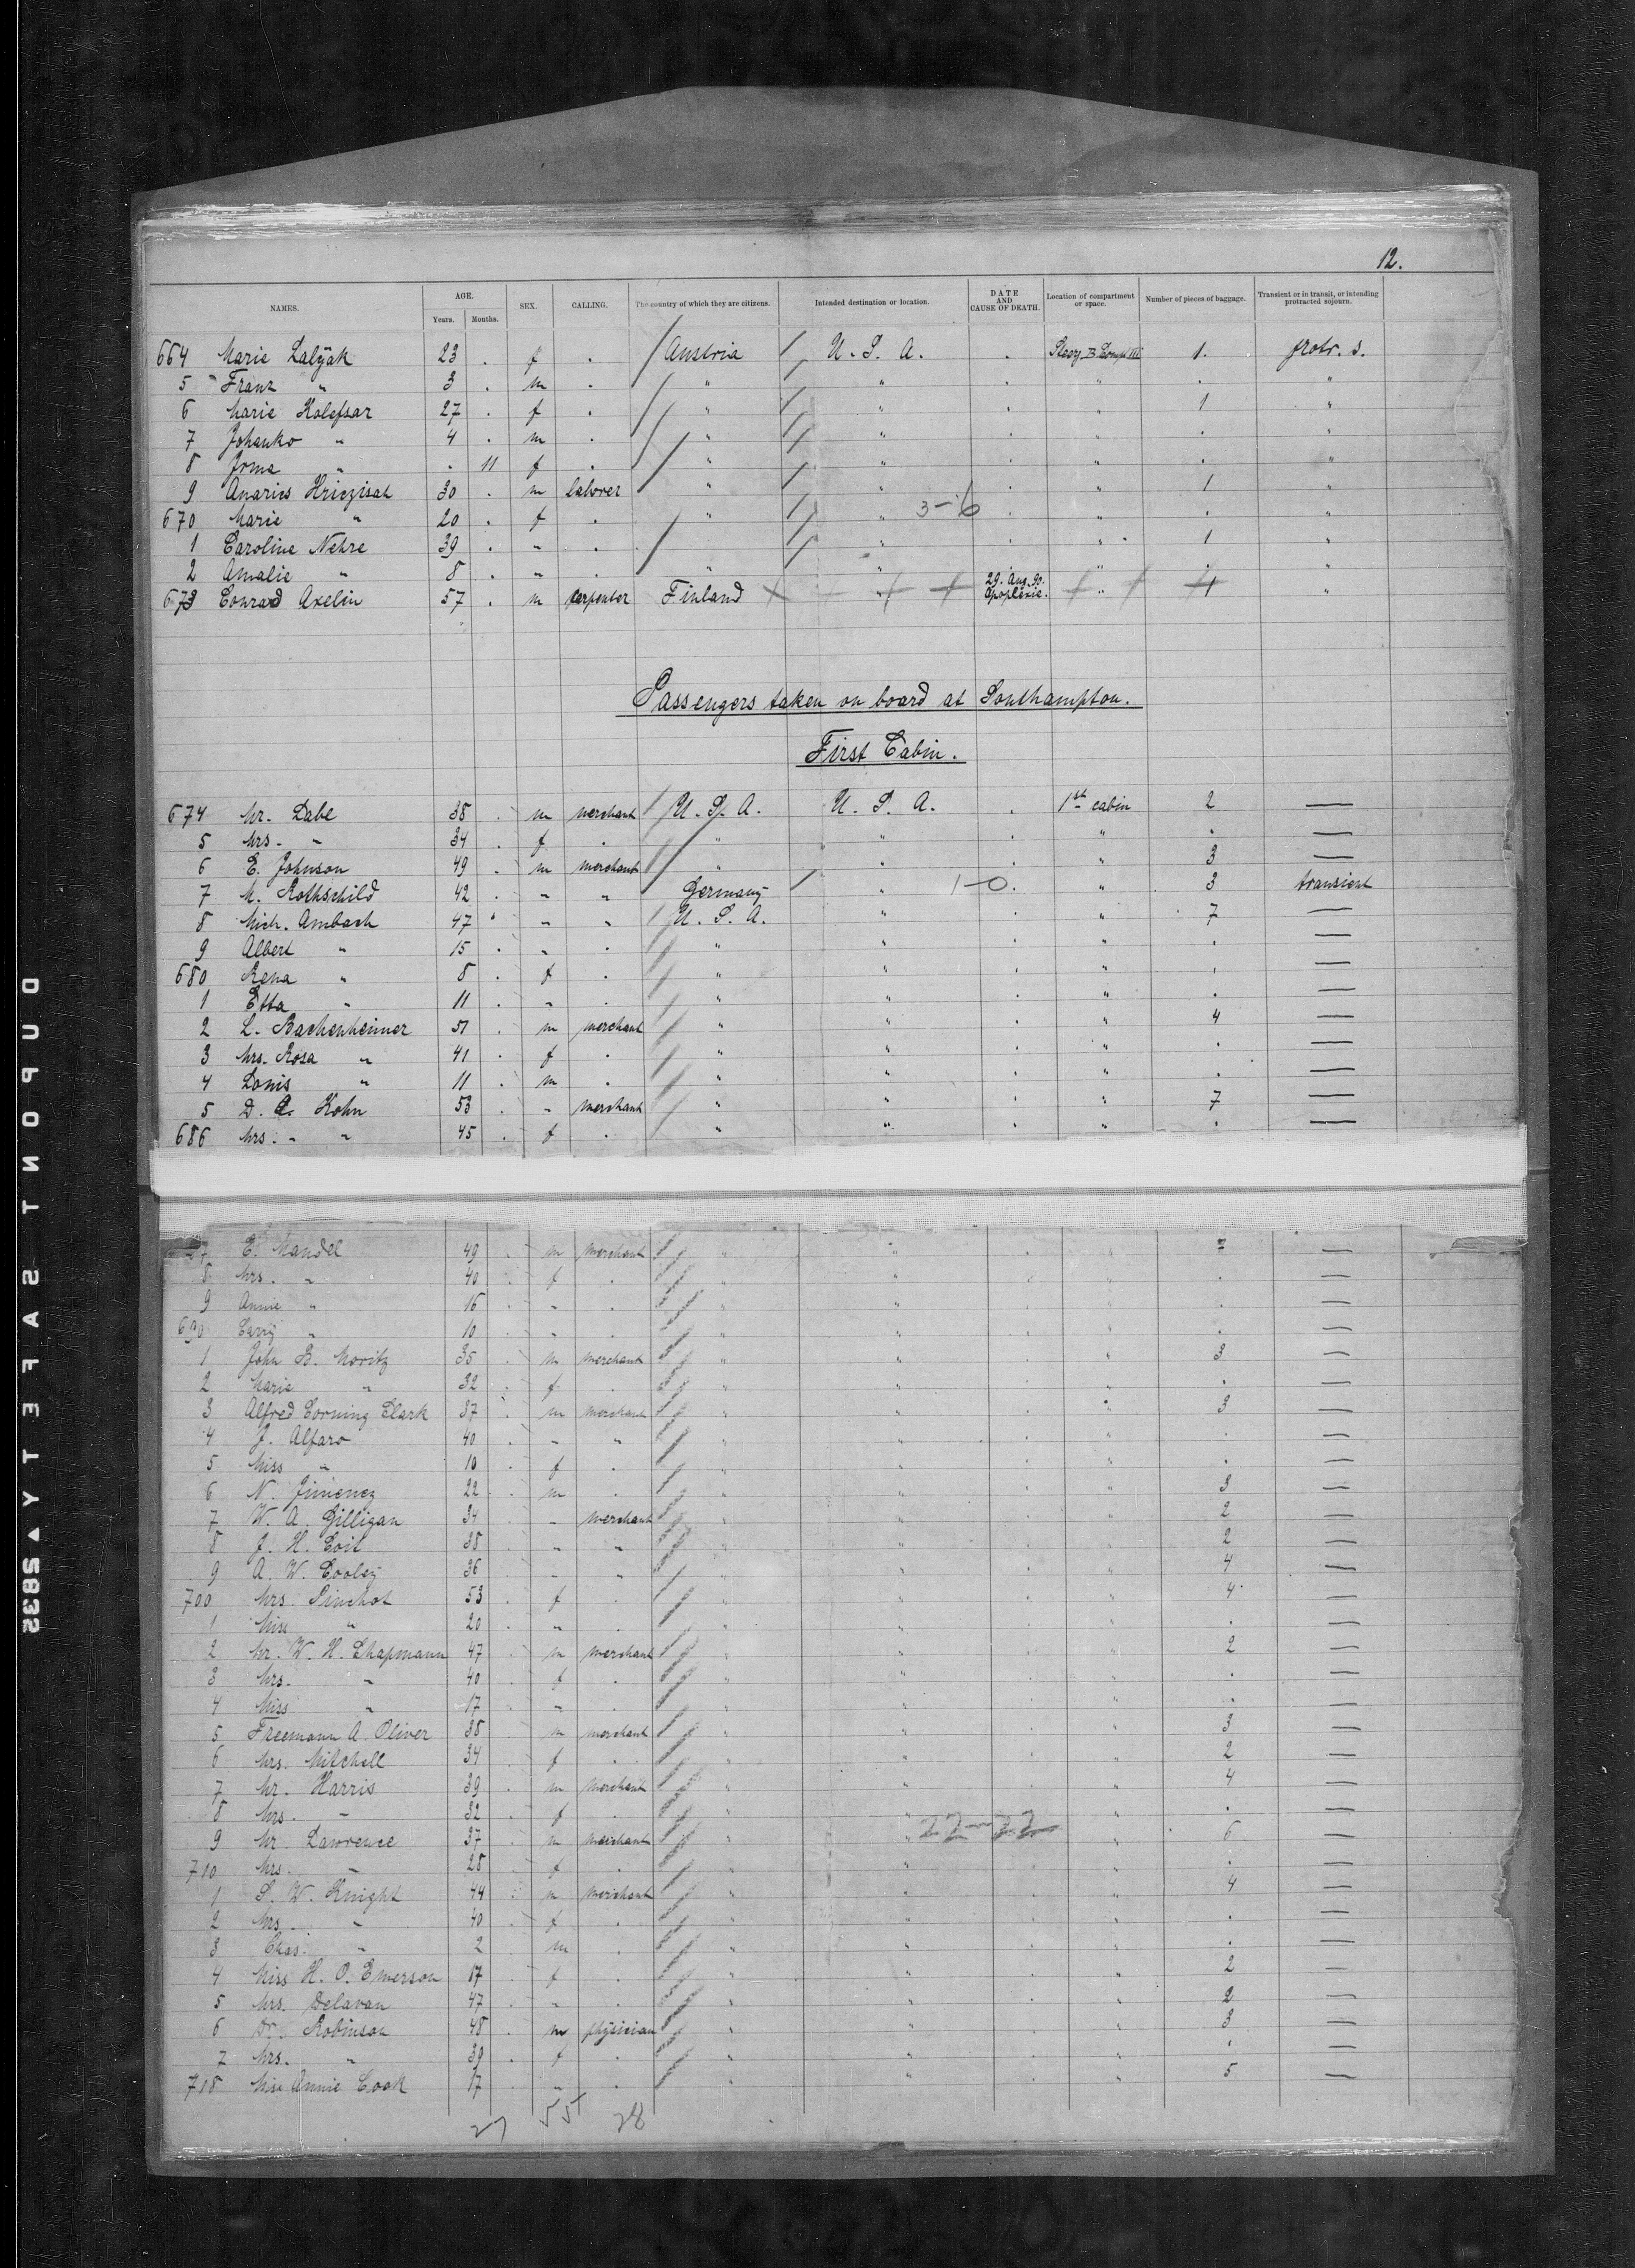 12.
NAMES. AGE. Years. Months. SEX. CALLING. The country of which they are citizens. Intended destination or location. DATE AND CAUSE OF DEATH. Location of compartment or space. Number of pieces of baggage. Transient or in transit, or intending protracted sojourn.
664 Marie Lalyák 23 . f . Austria U. S. A. . 1. protr. s.
5 Franz " 3 . m . " " . " . "
6 Marie 27 . f . " " . " 1 "
7 Johanko " 4 . m . " " . " . "
8 Irma " . 11 f . " " . " . "
9 30 . m laborer " " . " 1 "
670 Marie " 20 . f . " " 3-6 . " . "
1 Caroline Nehre 39 . " . " . " 1 "
2 Amalie " 8 . " . " " " . "
673 Conrad Axelin 57 . m carpenter Finland " 29. Aug. 90. Apoplexie. " 1 "
Passengers taken on board at Southampton.
First Cabin.
674 Mr. Labe 38 . m merchant U. S. A. U. S. A. . 1st cabin 2 —
5 Mrs. " 34 . f . " " . " . —
6 E. Johnson 49 . m merchant " " . " 3 —
7 M. Rothschild 42 . " " Germany " 1-0. " 3 transient
8 Mich. Ambach 47 . " " U. S. A. " . " 7 —
9 Albert " 15 . " . " " . " . —
680 Rena " 8 . f . " " . " . —
1 Etta " 11 . " . " " . " . —
2 L. Bachenheimer 51 m merchant " " . " 4 —
3 Mrs. Rosa " 41 . f . " " . " . —
4 Louis " 11 . m . " " . " . —
5 D. Kohn 53 . " merchant " " . " 7 —
686 Mrs. " " 45 . f . " " . " . —
7 E. Mandel 49 . m merchant " " . " 7 —
8 Mrs. " 40 . f . " " . " . —
9 Annie " 16 . " . " " . " . —
690 Carry " 10 . " . " " . " . —
1 John B. Moritz 35 . m merchant " " . " 3 —
2 Marie " 32 . f . " " . " . —
3 Alfred Corning Clark 37 . m merchant " " . " 3 —
4 J. Alfaro 40 . " " " " . " . —
5 Miss " 10 . f . " " . " . —
6 N. Jimenez 22 . m . " " . " 3 —
7 W. A. Gilligan 34 . " merchant " " . " 2 —
8 J. H. Coit 38 . " " " " . " 2 —
9 A. W. Cooley 36 . " " " " . " 4 —
700 Mrs. Pinchot 53 . f . " " . " 4 —
1 Miss " 20 . " . " " . " . —
2 Mr. W. H. Chapmann 47 . m merchant " " . " 2 —
3 Mrs. " 40 . f . " " . " . —
4 Miss " 17 . " . " " . " . —
5 Freemann A. Oliver 38 . m merchant " " . " 3 —
6 Mrs. Mitchell 34 . f . " " . " 2 —
7 Mr. Harris 39 . m merchant " " . " 4 —
8 Mrs. " 32 . f . " " . " . —
9 Mr. Lawrence 37 . m merchant " " 22-22 " 6 —
710 Mrs. " 28 . f . " " . " . —
1 S. W. Knight 44 . m merchant " " . " 4 —
2 Mrs. " 40 . f . " " . " . —
3 Chas. " 2 . m . " " . " . —
4 Miss H. O. Emerson 17 . f . " " . " 2 —
5 Mrs. Delavan 47 . " . " " . " 2 —
6 Dr. Robinson 48 . m physician " " . " 3 —
7 Mrs. " 39 . f . " " . " . —
718 Miss Annie Cook 17 " . " " . " 5 —
27 55 28
DUPONT SAFETY 5835